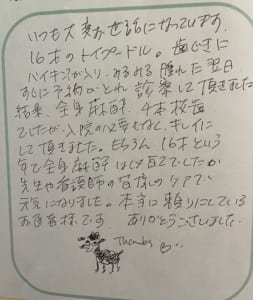 いつも大変お世話になっています。
16才のトイプードル。歯ぐきに
バイキンが入り、みるみる腫れた翌日
すぐに予約がとれ診察して頂きました
結果、全身麻酔、4本抜歯
でしたが入院の必要もなく、キレイに
して頂きました。もちろん16才という
年で全身麻酔は心配でしたが
先生や看護師の皆様のケアで
元気になりました。本当に頼りにしている
お医者様です。ありがとうございました。
Thanks